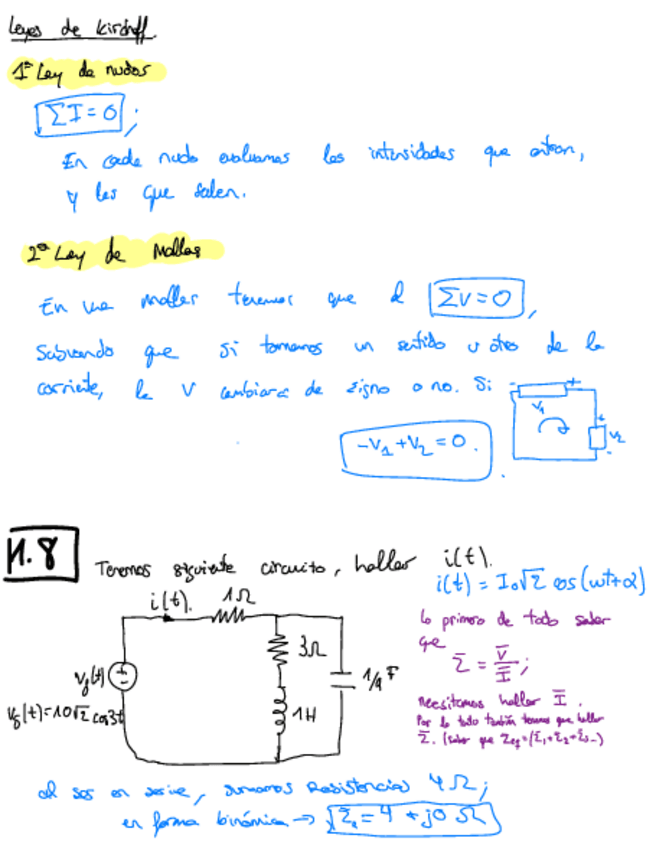 Leyes de Kirchoff
1ª Ley de nudos
ΣI = 0 ;
En cada nudo evaluamos las intensidades que entran,
y las que salen.
2ª Ley de Mallas
En una malla tenemos que el ΣV = 0 ,
Sabiendo que si tomamos un sentido u otro de la
corriente, la V cambiará de signo o no. Si
- + V1 + V2 -
-V1 + V2 = 0 .
M.8
Tenemos siguiente circuito, hallar i(t).
i(t) = I0√2 cos(wt+α)
i(t). 1Ω
3Ω
1H
1/9 F
Vg(t)
+ -
Vg(t)=10√2 cos3t
Lo primero de todo saber
que
Z̄ = V̄/Ī ;
Necesitamos hallar Ī .
Por lo tanto también tenemos que hallar
Z̄. (saber que Zeq=(Z̄1+Z̄2+Z̄3...)
al ser en serie, sumamos Resistencias 4Ω;
en forma binómica → Z̄1 = 4 + j0 Ω